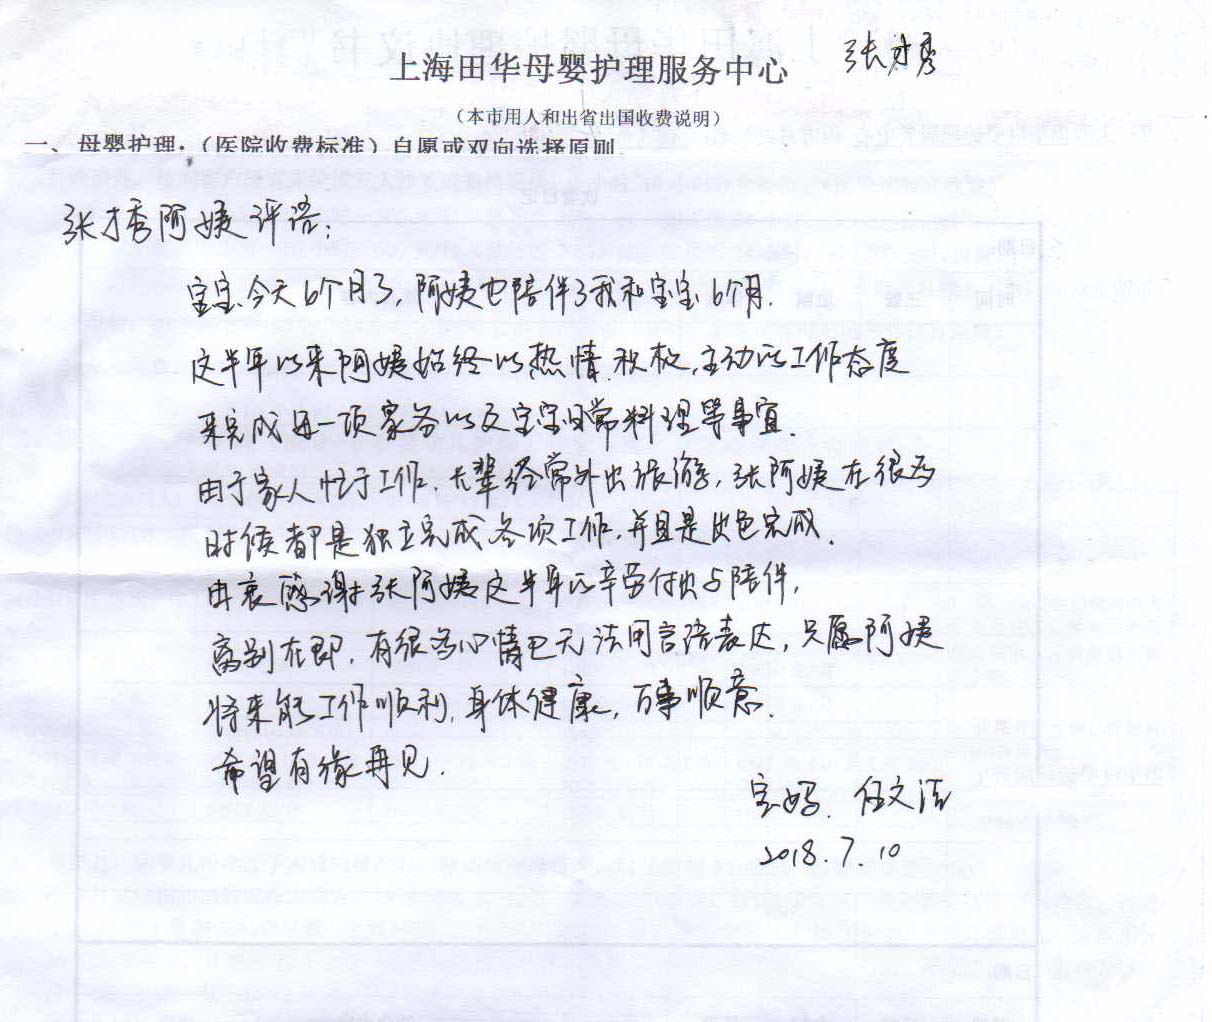 上海田华母婴护理服务中心 张才秀
（本市用人和出省出国收费说明）
一、母婴护理：（医院收费标准）自愿或双向选择原则
张才秀阿姨评语：
宝宝今天6个月了，阿姨也陪伴了我和宝宝6个月.
这半年以来阿姨始终以热情，积极，主动的工作态度
来完成每一项家务以及宝宝日常料理等事宜
由于家人忙于工作，长辈经常外出旅游，张阿姨在很多
时候都是独立完成各项工作并且是出色完成.
由衷感谢张阿姨这半年的辛劳付出与陪伴，
离别在即，有很多心情已无法用言语表达，只愿阿姨
将来能工作顺利，身体健康，万事顺意.
希望有缘再见.
宝妈：任文洁
2018.7.10